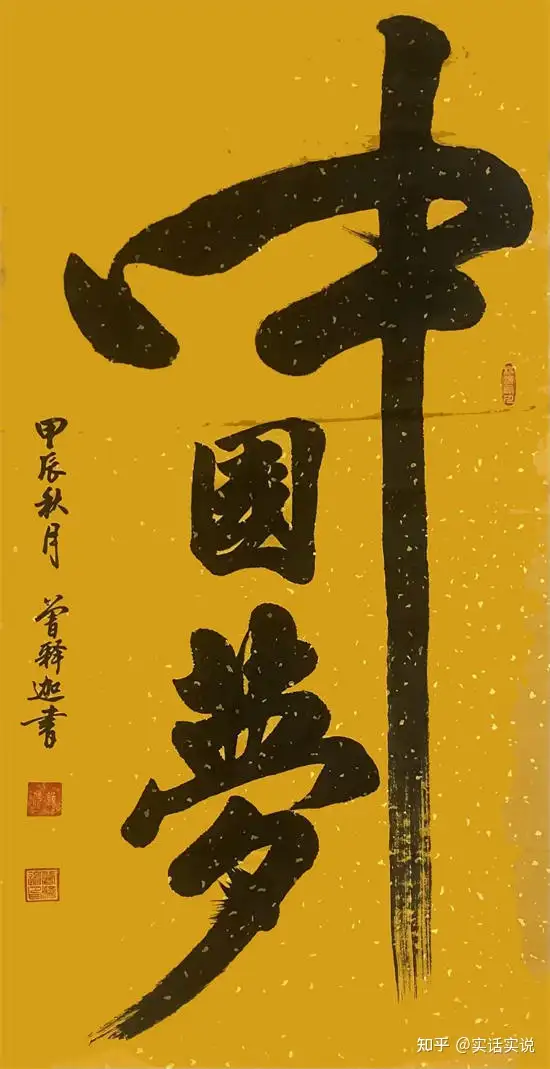 中國夢
甲辰秋月 曾驿迦書
知乎 @实话实说